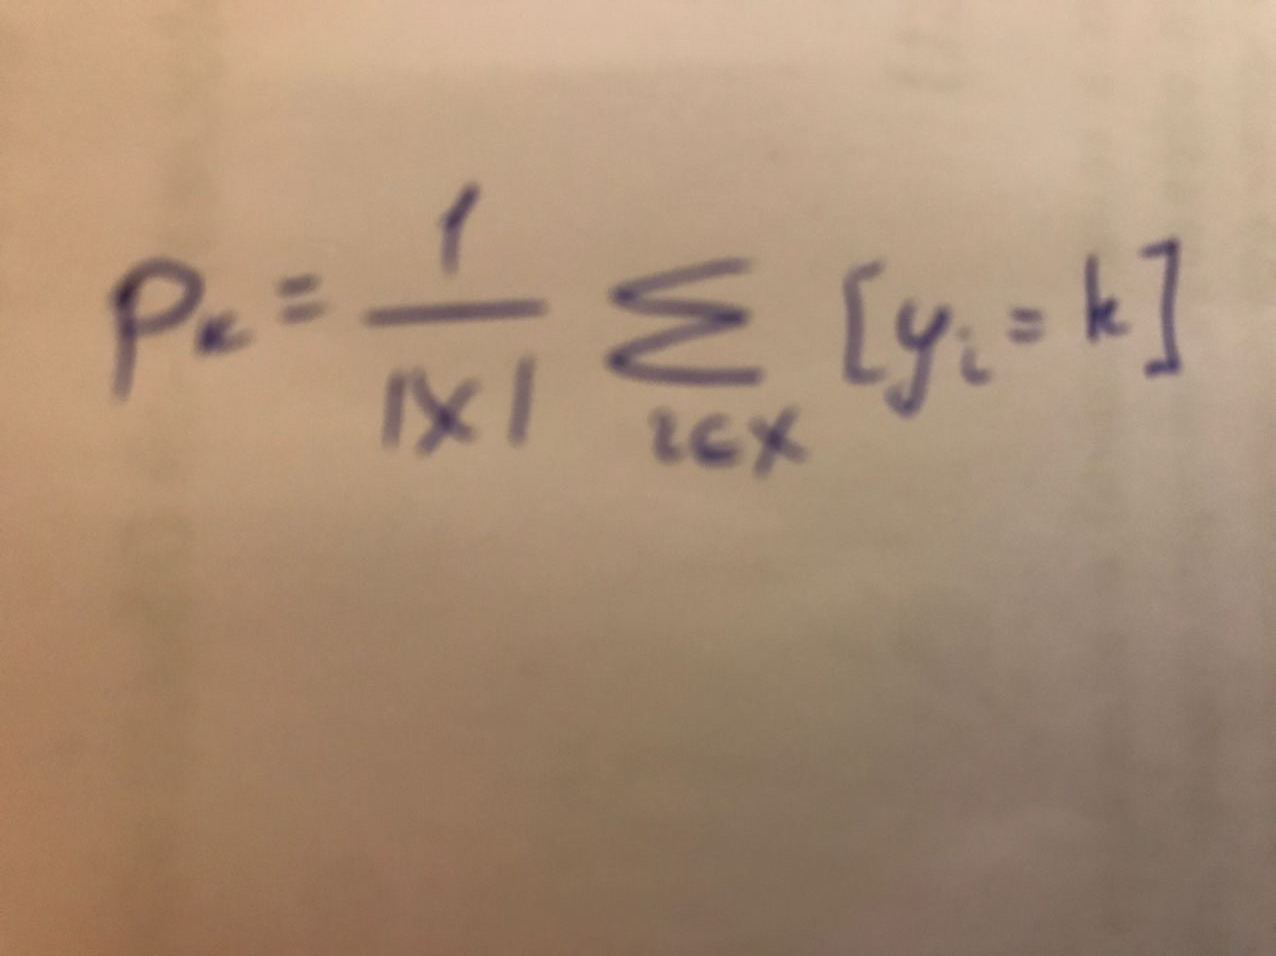 p_k = \frac{1}{|X|} \sum_{i \in X} [y_i = k]